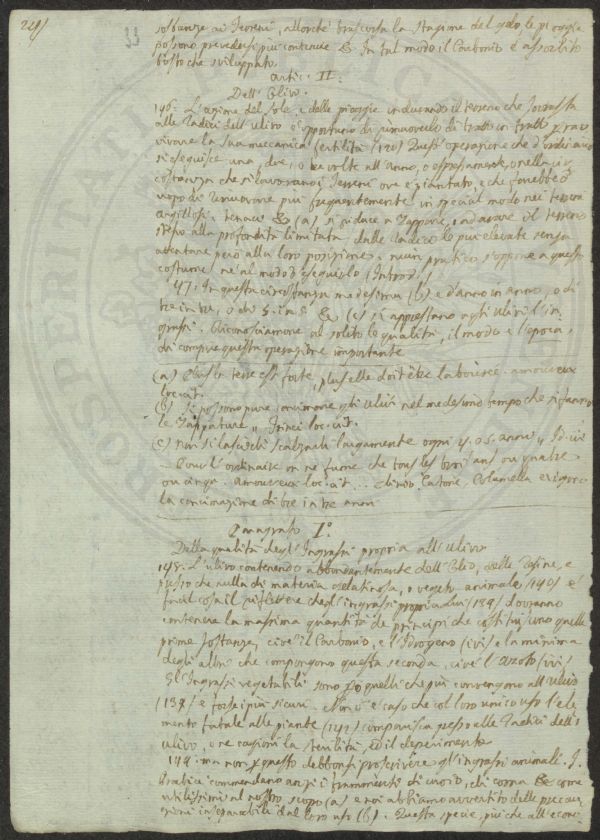 229/
33
sostanze ai Terreni, allorchè trascorsa la stagione del gelo le pioggie
possono prevedersi più continue &. In tal modo il Carbonio è assorbito
tosto che sviluppato.
artic. II:
Dell' Ulivo.
146: L'azione del sole, e delle pioggie indurando il terreno che sovrasta
alle Radici dell'ulivo è opportuno di smuoverlo di tratto in tratto per rav
vivare la sua meccanica fertilità (120) Quest' operazione che d'ordinario
si eseguisce una, due, o tre volte all'anno, o espressamente, o nella cir
costanza che si lavorano i Terreni ove è piantato, e che sarebbe d'
uopo di rinnovare più frequentemente in special modo nei terreni
argillosi, tenaci & (a) si riduce a Zapparne, od arare il terreno
stesso alla profondità limitata dalle Radici le più elevate senza
attentare però alla loro posizione. niun pratico s'oppone a questo
costume, nè al modo d'eseguirlo (Introd.)
147: In questa circostanza medesima (b) e d'anno in anno, o di
tre in tre, o di 5. in 5. & (c) si apprestano agli ulivi l'in
grassi. Riconosciamone al solito le qualità, il modo e l'epoca
di compire questa operazione importante
(a) Plus la terre est forte, plus elle doit être labourée. amoureux
loc. cit.
(b) si possono pure concimare gli ulivi nel medesimo tempo che si fanno
le Zappature,, Trinci loc. cit.
(c) non si lascij di scalzarli largamente ogni 4. o 5. anni,, Id. ivi
Pour l'ordinaire on ne fume que tous les trois ans ou quatre
ou cinq. amoureux loc. cit. .. Plinio, Catone, Columella esigono
la concimazione di tre in tre anni
Paragrafo I.°
Della qualità degl'Ingrassi propria all'ulivo
148: L'ulivo contenendo abbondantemente dell'Olio, delle Resine, e
presso che nulla di materia gelatinosa, o vegeto animale (140) è
facil cosa il riflettere che gl'ingrassi propri a lui (139) dovranno
contenere la massima quantità de' principi che costituiscono quelle
prime sostanze, cioè il Carbonio, e l'Idrogeno (ivi) e la minima
degli altri che compongono questa seconda, cioè l'azoto (ivi)
Gl'Ingrassi vegetabili sono per quelli che più convengono all'ulivo
(139) e forse i più sicuri. Non v'è caso che col loro unico uso l'ele
mento fatale alle piante (142) comparisca presso alle Radici dell'
ulivo, o ne cagioni la sterilità, ed il deperimento.
149: ma non per questo debbonsi proscrivere gl'ingrassi animali. I
Pratici commendano anzi i frammenti di cuoio, di corna & come
utilissimi al nostro scopo (a) e noi abbiamo avvertito delle precau
zioni inseparabili dal loro uso (b). Questa specie, più che all'econo